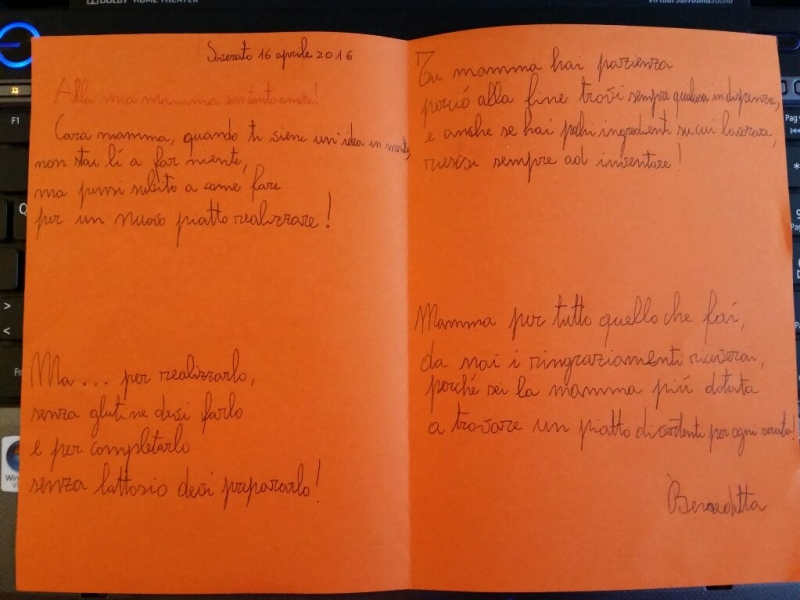 DOLBY HOME THEATER
Virtual SurroundSound
16 aprile 2016
Alla mia mamma con tanto amore!
Cara mamma, quando ti viene un'idea in mente,
non stai lì a far niente,
ma pensi subito a come fare
per un nuovo piatto realizzare!
Ma... per realizzarlo,
senza glutine devi farlo
e per completarlo
senza lattosio devi prepararlo!
Tu mamma hai pazienza
perciò alla fine trovi sempre qualcosa in dispensa,
e anche se hai pochi ingredienti su cui lavorare,
riesci sempre ad inventare!
Mamma per tutto quello che fai,
da noi i ringraziamenti riceverai,
perché sei la mamma più dotata
a trovare un piatto divertente per ogni serata!
Benedetta
F1
Q
>
<
Fn
Pag